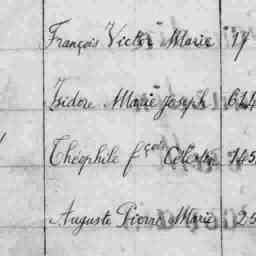 François Victor Marie 17
Isidore Marie Joseph 614
Théophile fçois Célestin 745
Auguste Pierre Marie 25